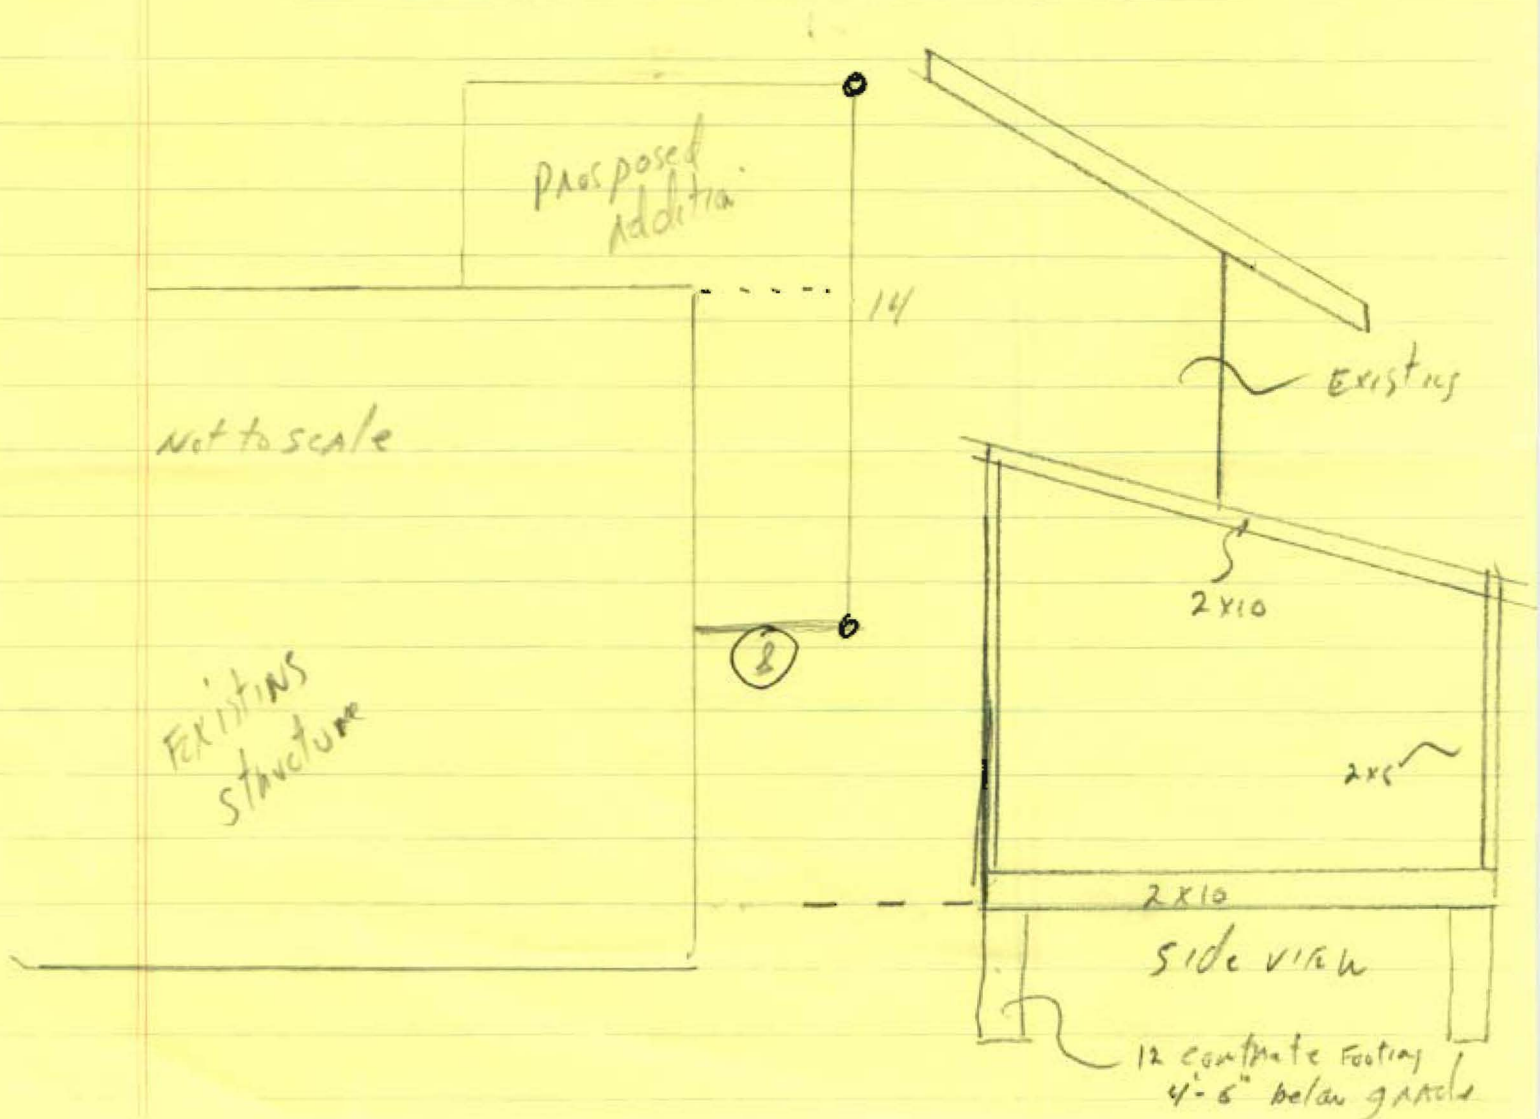 Prosposed
Addition
14
Existing
Not to scale
2x10
8
Existing
structure
2x6
2x10
side view
12 contrate Footing
4'-6" below grade